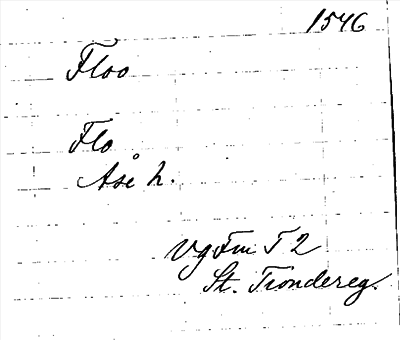 1546
Floo
Flo
Åse h.
Vg Fm T 2
St. Trondereg.